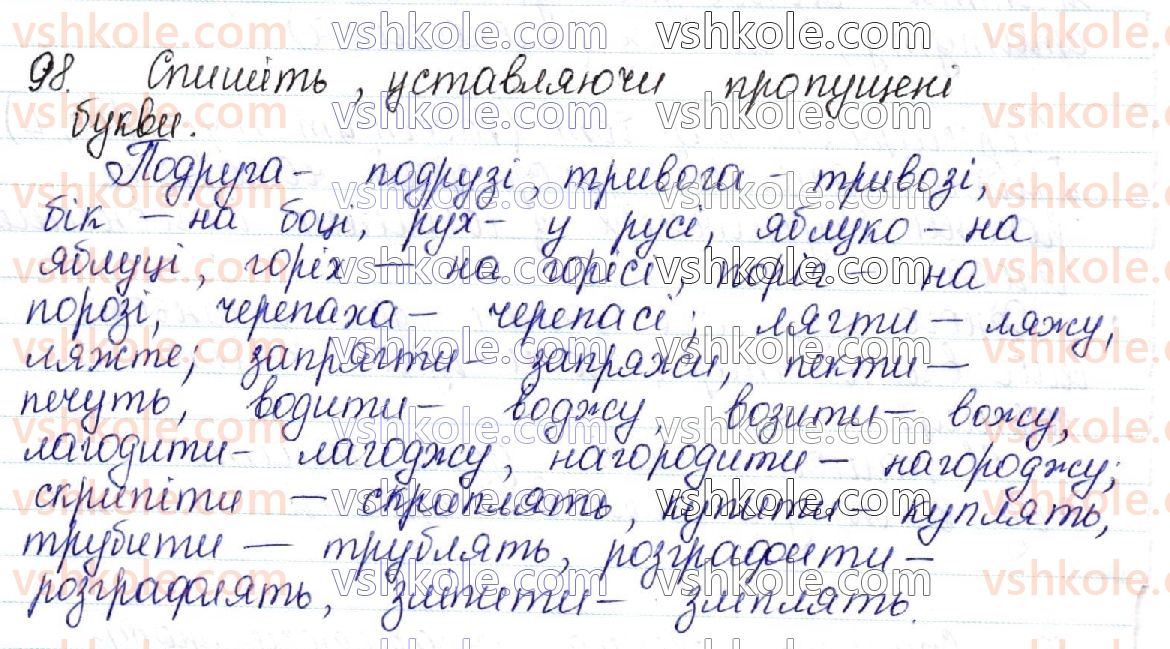 98. Спишіть, уставляючи пропущені
букви.
Подруга - подрузі, тривога - тривозі,
бік - на боці, рух - у русі, яблуко - на
яблуці, горіх - на горісі, поріг - на
порозі, черепаха - черепасі; лягти - ляжу,
ляжте; запрягти - запряжи, пекти -
печуть, водити - воджу, возити - вожу,
лагодити - лагоджу, нагородити - нагороджу;
скрипіти - скриплять, купити - куплять,
трубити - трублять, розграфити -
розграфлять, зліпити - зліплять.
vshkole.com